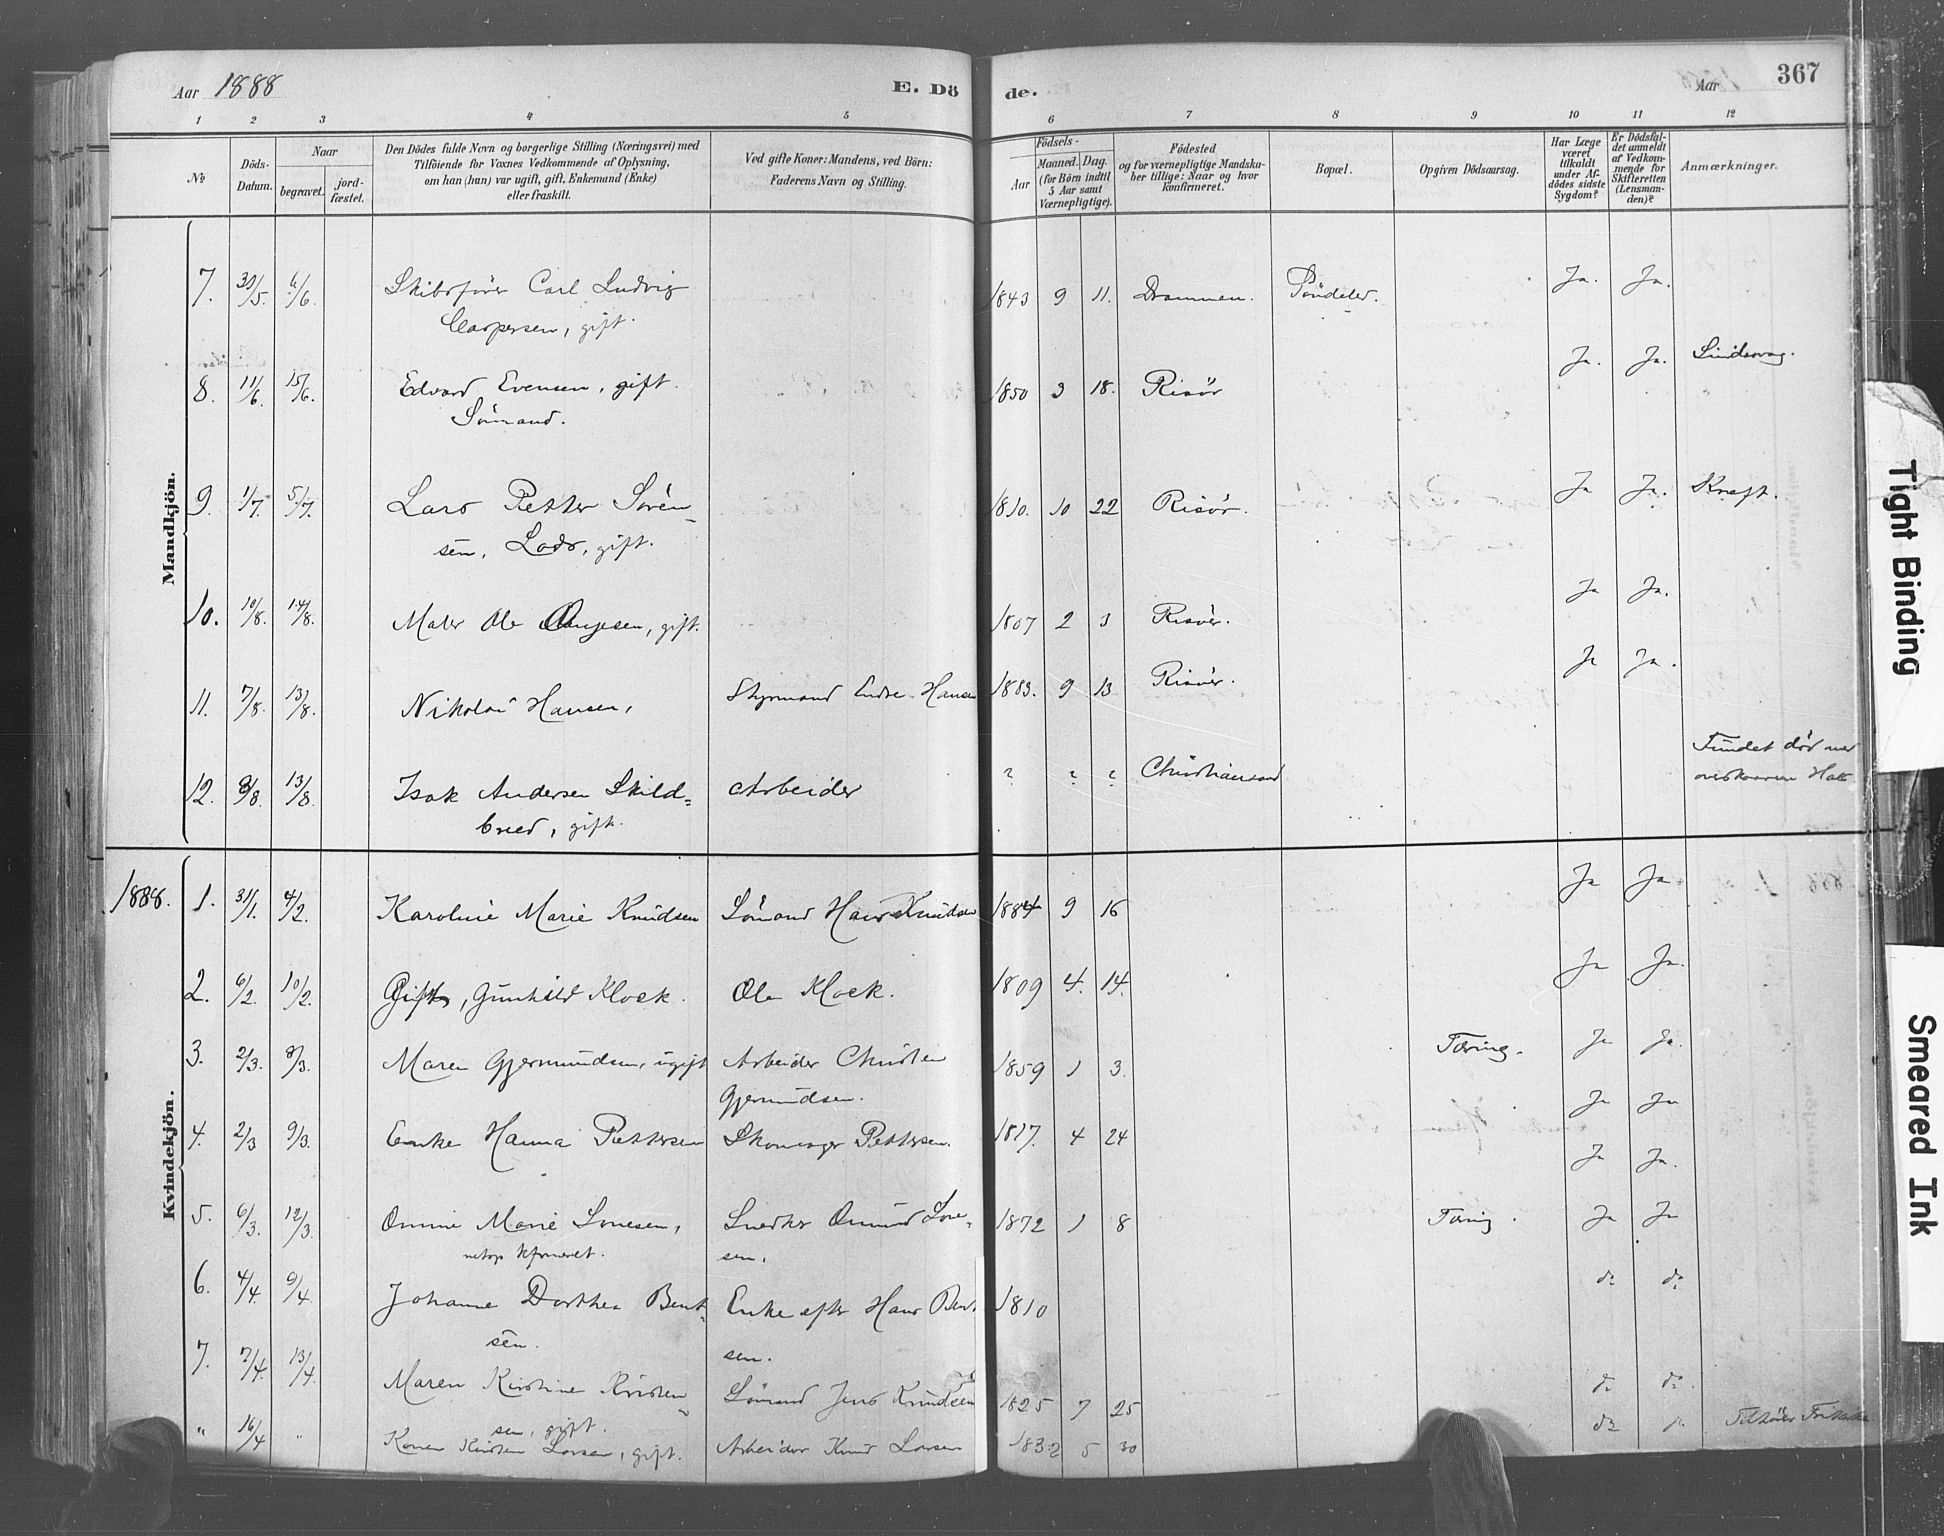 Aar 1888
E. Dö
de.
Aar
367
1 2 3 4 5 6 7 8 9 10 11 12
No
Döds-
Datum.
Naar
begravet.
jord-
fæstet.
Den Dödes fulde Navn og borgerlige Stilling (Næringsvei) med
Tilföiende for Voxnes Vedkommende af Oplysning,
om han (hun) var ugift, gift, Enkemand (Enke)
eller fraskilt.
Ved gifte Koner: Mandens, ved Börn:
Faderens Navn og Stilling.
Födsels-
Aar
Maaned.
Dag.
(for Börn indtil
5 Aar samt
Værnepligtige).
Födested
og for værnepligtige Mandska-
ber tillige: Naar og hvor
konfirmeret.
Bopæl.
Opgiven Dödsaarsag.
Har Læge
været
tilkaldt
under Af-
dödes sidste
Sygdom?
Er Dödsfal-
det anmeldt
af Vedkom-
mende for
Skifteretten
(Lensman-
den)?
Anmærkninger.
Mandkjön.
7. 30/5. 6/6. Skibsfører Carl Ludvig 1843 9 11. Drammen. Søndeled. Ja. Ja.
Caspersen, gift.
8. 11/6. 15/6. Edvard Evensen, gift. 1850 3 18. Risör Ja. Ja.
Sömand.
9. 1/7. 5/7. Lars Petter Sören- 1810. 10 22 Risör. Ja Ja. Kraft.
sen, Lods, gift.
10. 10/8. 14/8. Maler Ole gift. 1807 2 3 Risör. Ja Ja.
11. 7/8. 13/8. Nikolai Hansen, Styrmand Endre Hansen 1883. 9 13 Risör. Ja Ja.
12. 9/8. 13/8. Isak Andersen Skild= Arbeider ? ? ? Christiansand Fundet död
bred, gift.
Kvindekjön.
1888. 1. 31/1. 4/2. Karoline Marie Knudsen Sömand Hans Knudsen 1884 9 16 Ja Ja
2. 6/2. 10/2. Gift, Gunhild Klock. Ole Klock. 1809 4. 14. Ja Ja.
3. 2/3. 8/3. Maren Gjermundsen, ugift Arbeider Christen 1859 1 3. Tæring. Ja Ja.
Gjermundsen.
4. 2/3 9/3. Enke Hanna Pettersen Skomager Pettersen. 1817. 4 24 Ja Ja
Ja Ja.
5. 6/3. 12/3. Omine Marie Larsen, Snedker Omund Lar- 1872 1 8 Tæring. Ja Ja
netop kfrmeret. sen.
6. 4/4. 9/4. Johanne Dorthea Bent- Enke efter Hans Bent- 1810 do do
sen. sen.
7. 7/4. 13/4. Maren Kirstine Kristen- Sömand Jens Knudsen 1825 7 25 do do
sen, gift.
" 16/4 " Konen Kirsten Larsen, gift. Arbeider Knud Larsen 1832 5 30 do do Tilhörer
Tight Binding
Smeared Ink